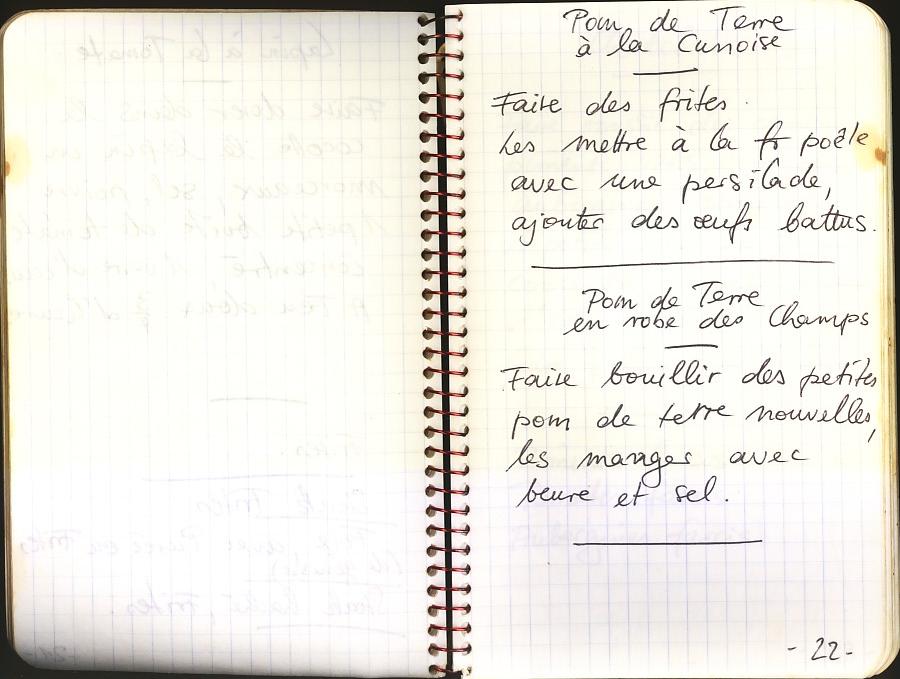 Pom de Terre
à la Cunoise
Faire des frites.
Les mettre à la fr poêle
avec une persilade,
ajouter des œufs battus.
Pom de Terre
en robe des Champs
Faire bouillir des petites
pom de terre nouvelles,
les manger avec
beure et sel.
- 22 -